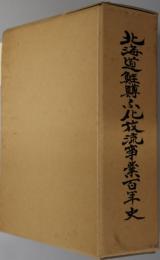 北海道鮭鱒ふ化放流事業百年史